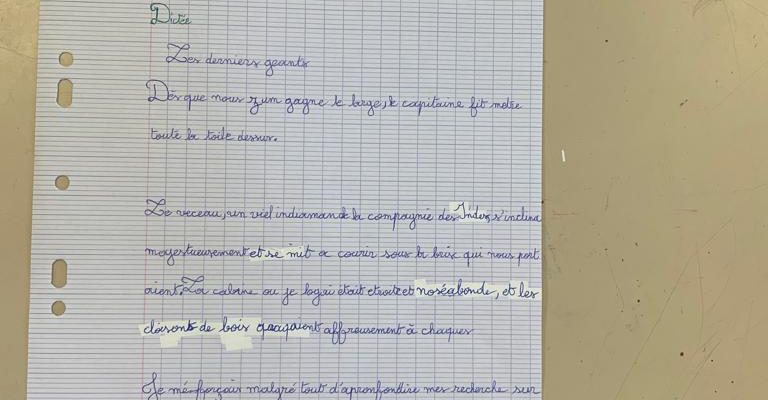 Dictée
Les derniers geants
Dès que nous gagne le large, le capitaine fit metre
toute la toile dessur.
Le veceau, un viel indiaman de la compagnie des Indes, s'inclina
mayestueusement et se mit a courir sous la brise qui nous port
aient. La cabine ou je logai était etroite et noséabonde, et les
cloisons de bois craquaient affreusement à chaques
Je mé forçais malgré tout d'aprofondire mes recherche sur